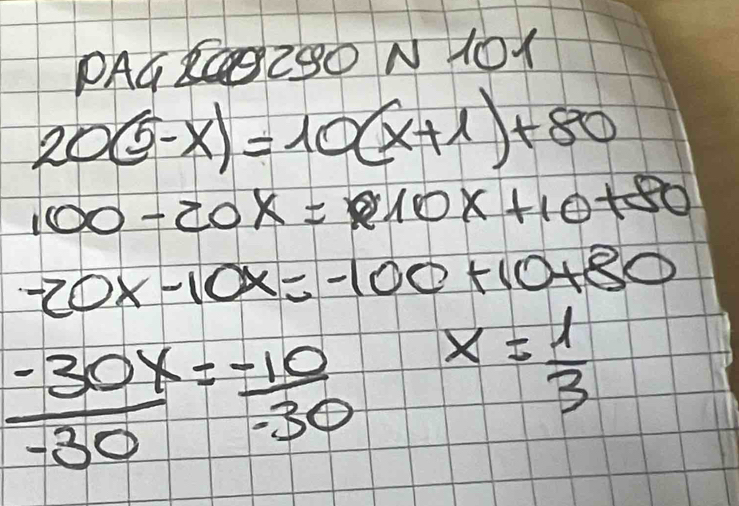 PAG 290 N 101
20(5-x)=10(x+1)+80
100-20x=10x+10+80
-20x-10x=-100+10+80
-30x/-30=-10/-30 x=1/3